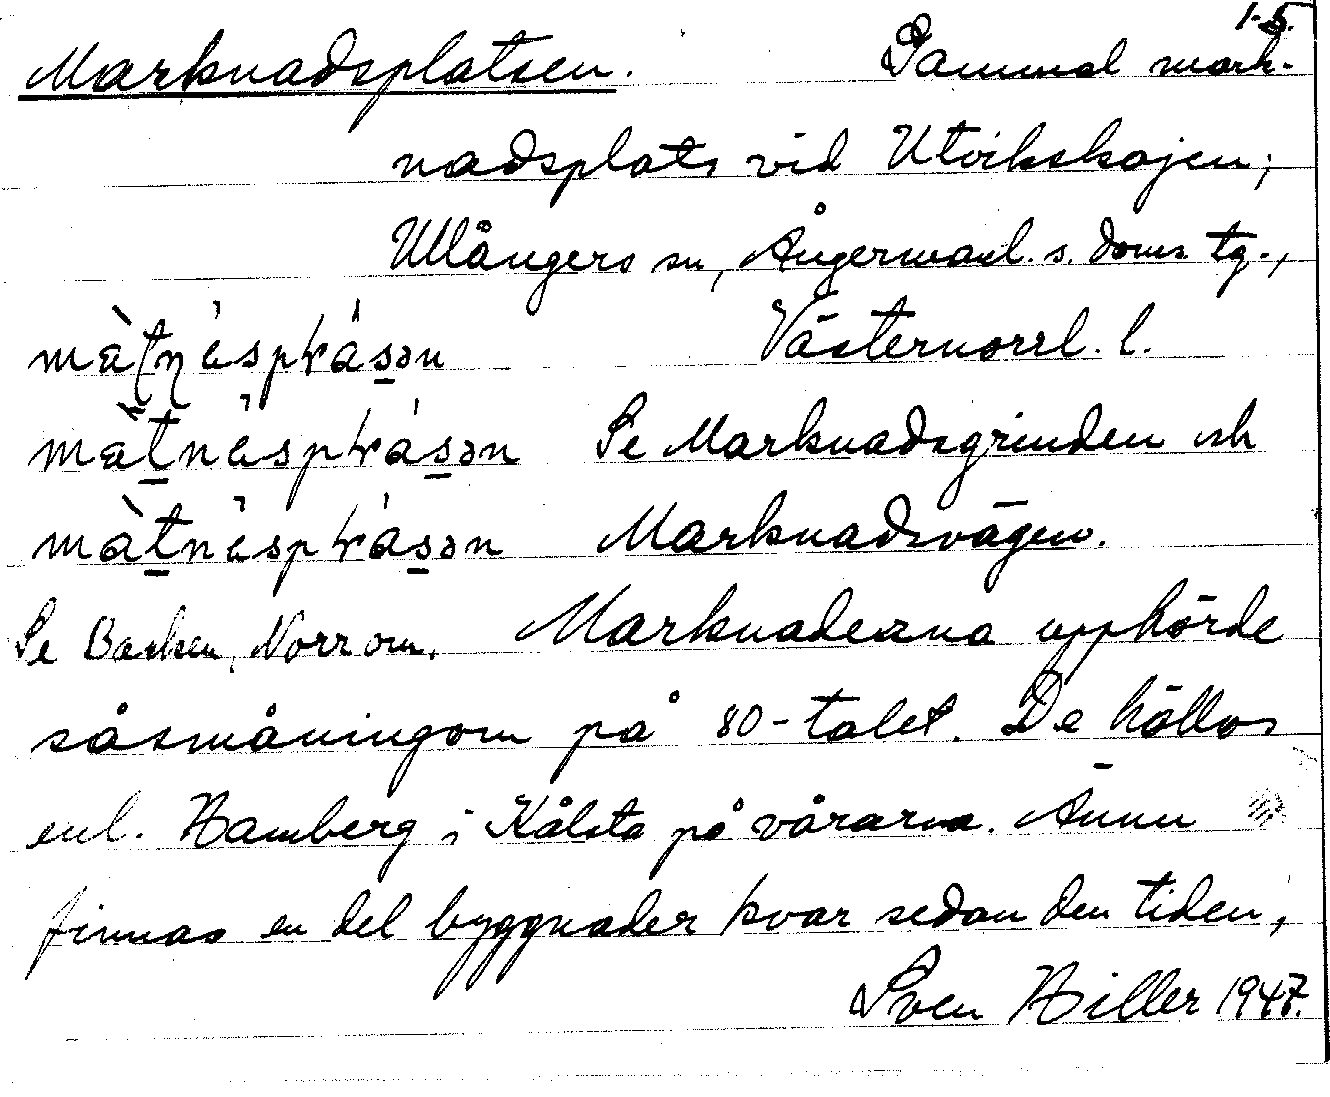 1-5.
Marknadsplatsen. Gammal mark-
nadsplats vid Utvikskajen;
Ullångers sn, Ångermanl. s. doms. tg.,
Västernorrl. l.
Se Marknadsgrinden och
Marknadsvägen.
Se Backen, Norrom. Marknaderna upphörde
såsmåningom på 80-talet. De höllos
enl. Hamberg i Kålsta på vårarna. Ännu
finnas en del byggnader kvar sedan den tiden,
Sven Hiller 1947.